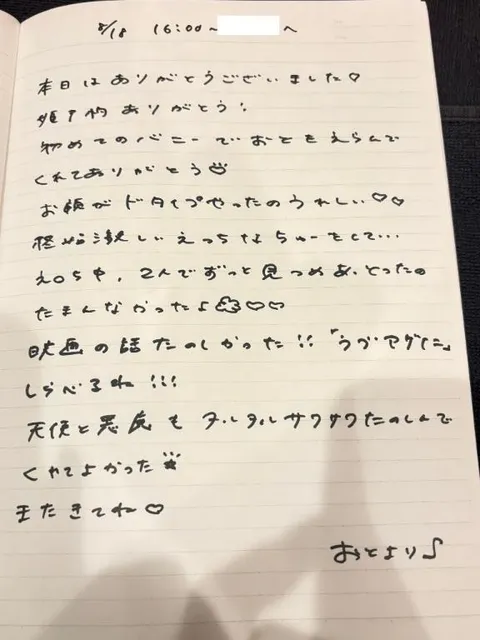 8/18 16:00~ へ
本日はありがとうございました♡
姫予約ありがとう!
初めてのバニーでおとをえらんで
くれてありがとう
お顔がドタイプやったのうれしい♡♡
激しいえっちなちゅーをして…
えろちや、2人でずっと見つめあ、とったの
たまんなかったよ♡♡
映画の話たのしかった!!「ラブ・アゲイン」
しらべるね!!!
天使と悪魔も タルタルサワサワたのしんで
くれてよかった
またきてね♡
おとより♪